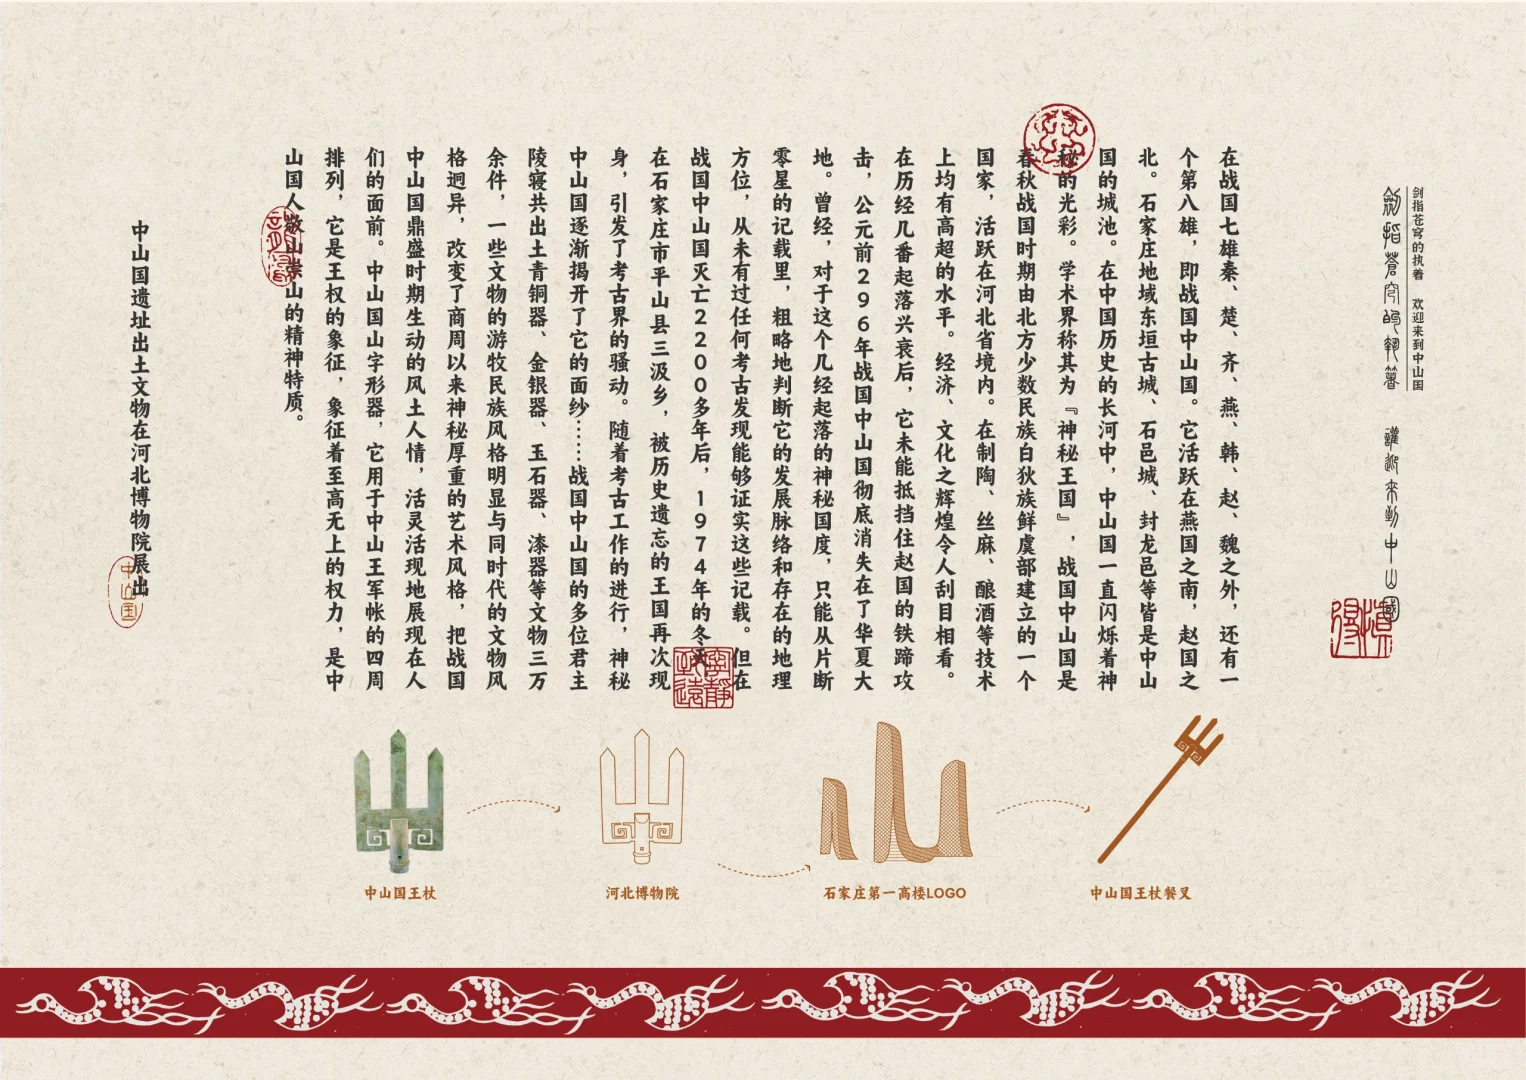 剑指苍穹的执着 欢迎来到中山国
劍指蒼穹的執著 讙迎來到中山國
在战国七雄秦、楚、齐、燕、韩、赵、魏之外，还有一
个第八雄，即战国中山国。它活跃在燕国之南，赵国之
北。石家庄地域东垣古城、石邑城、封龙邑等皆是中山
国的城池。在中国历史的长河中，中山国一直闪烁着神
秘的光彩。学术界称其为『神秘王国』，战国中山国是
春秋战国时期由北方少数民族白狄族鲜虞部建立的一个
国家，活跃在河北省境内。在制陶、丝麻、酿酒等技术
上均有高超的水平。经济、文化之辉煌令人刮目相看。
在历经几番起落兴衰后，它未能抵挡住赵国的铁蹄攻
击，公元前296年战国中山国彻底消失在了华夏大
地。曾经，对于这个几经起落的神秘国度，只能从片断
零星的记载里，粗略地判断它的发展脉络和存在的地理
方位，从未有过任何考古发现能够证实这些记载。但在
战国中山国灭亡2200多年后，1974年的冬天
在石家庄市平山县三汲乡，被历史遗忘的王国再次现
身，引发了考古界的骚动。随着考古工作的进行，神秘
中山国逐渐揭开了它的面纱……战国中山国的多位君主
陵寝共出土青铜器、金银器、玉石器、漆器等文物三万
余件，一些文物的游牧民族风格明显与同时代的文物风
格迥异，改变了商周以来神秘厚重的艺术风格，把战国
中山国鼎盛时期生动的风土人情，活灵活现地展现在人
们的面前。中山国山字形器，它用于中山王军帐的四周
排列，它是王权的象征，象征着至高无上的权力，是中
山国人敬山崇山的精神特质。
中山国遗址出土文物在河北博物院展出
中山国
寧靜
致遠
中山国王杖
河北博物院
石家庄第一高楼LOGO
中山国王杖餐叉